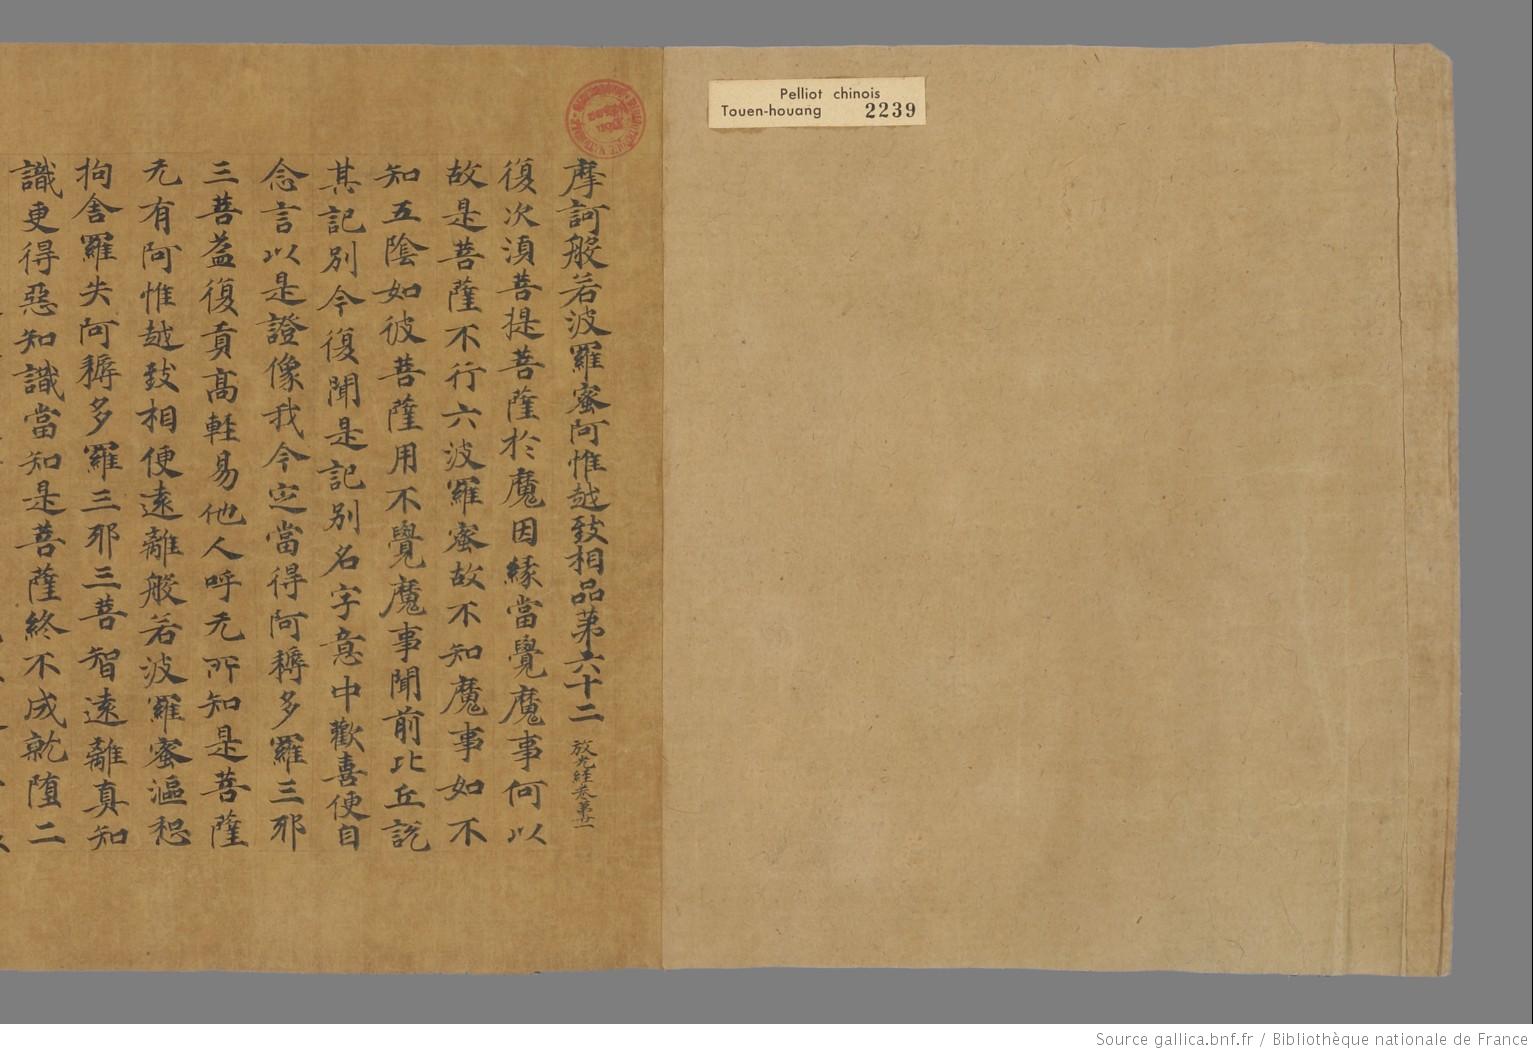 Pelliot chinois
Touen-houang 2239
摩訶般若波羅蜜阿惟越致相品苐六十二 放光経卷苐廿一
復次湏菩提菩薩於魔因緣當覺魔事何以
故是菩薩不行六波羅蜜故不知魔事如不
知五陰如彼菩薩用不覺魔事聞前比丘說
其記別今復聞是記別名字意中歡喜便自
念言以是證像我今定當得阿耨多羅三耶
三菩益復貢高輕易他人呼无所知是菩薩
无有阿惟越致相便遠離般若波羅蜜漚惒
拘舍羅失阿耨多羅三耶三菩智遠離真知
識更得惡知識當知是菩薩終不成就堕二
Source gallica.bnf.fr / Bibliothèque nationale de France